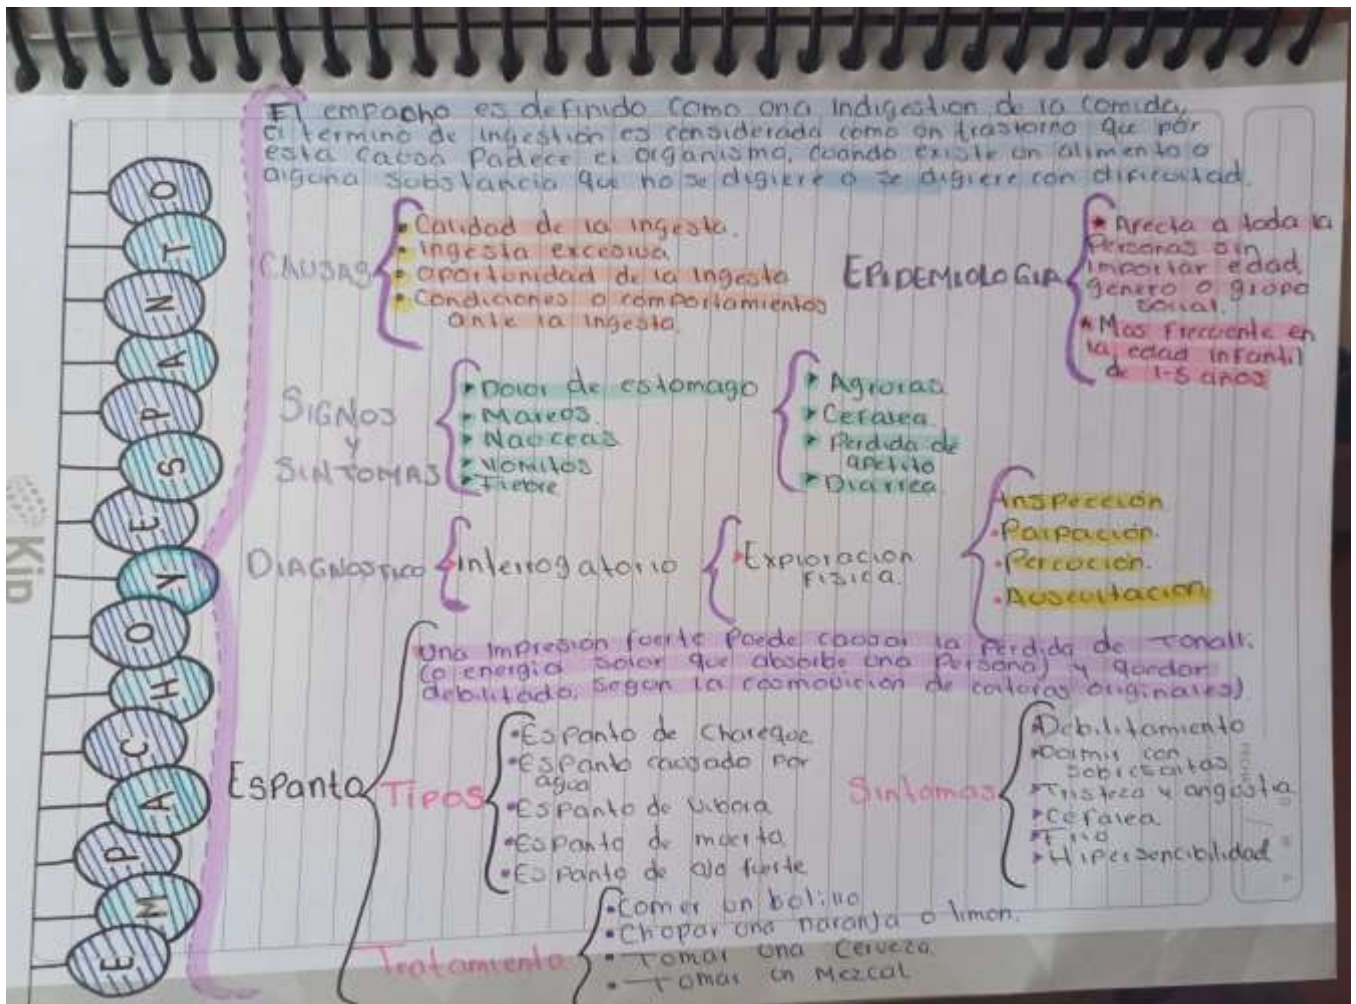 EMPACHO Y ESPANTO
El empacho es definido como una indigestion de la comida,
el termino de ingestión es considerada como un trastorno que por
esta causa padece el organismo, cuando existe un alimento o
alguna substancia que no se digiere o se digiere con dificultad.
CAUSAS
• Calidad de la ingesta.
• Ingesta excesiva
• oportunidad de la ingesta
• Condiciones o comportamientos
ante la ingesta.
EPIDEMIOLOGIA
* Afecta a toda la
personas sin
importar edad,
genero o grupo
social.
* Mas frecuente en
la edad infantil
de 1-5 años
SIGNOS
Y
SINTOMAS
Dolor de estomago
Mareos.
Nauceas
Vomitos
Fiebre
Agruras.
Cefalea.
Perdida de
apetito
Diarrea.
DIAGNOSTICO
Interrogatorio
Exploracion
Fisica.
Inspección
• Palpación.
• Percución.
• Auscultacion
Kip
Espanto
Una impresión fuerte puede causar la perdida de Tonalli.
(o energia solar que absorbe una persona) y quedar
debilitado, segun la cosmovicion de culturas originales)
Tipos
• Espanto de Chaneque
• Espanto causado por
agua
• Espanto de vibora
• Espanto de muerto.
• Espanto de ojo fuerte
Sintomas
Debilitamiento
Dormir con
sobresaltos
Tristeza y angustia
Cefalea.
Frio
Hipersencibilidad
Tratamiento
• Comer un bolillo
• Chupar una naranja o limon.
• Tomar una Cerveza.
• Tomar un Mezcal